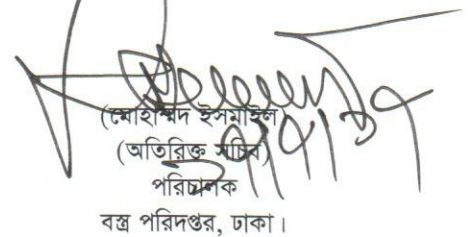 (মোহাম্মদ ইসমাইল)
(অতিরিক্ত সচিব)
পরিচালক
বস্ত্র পরিদপ্তর, ঢাকা।